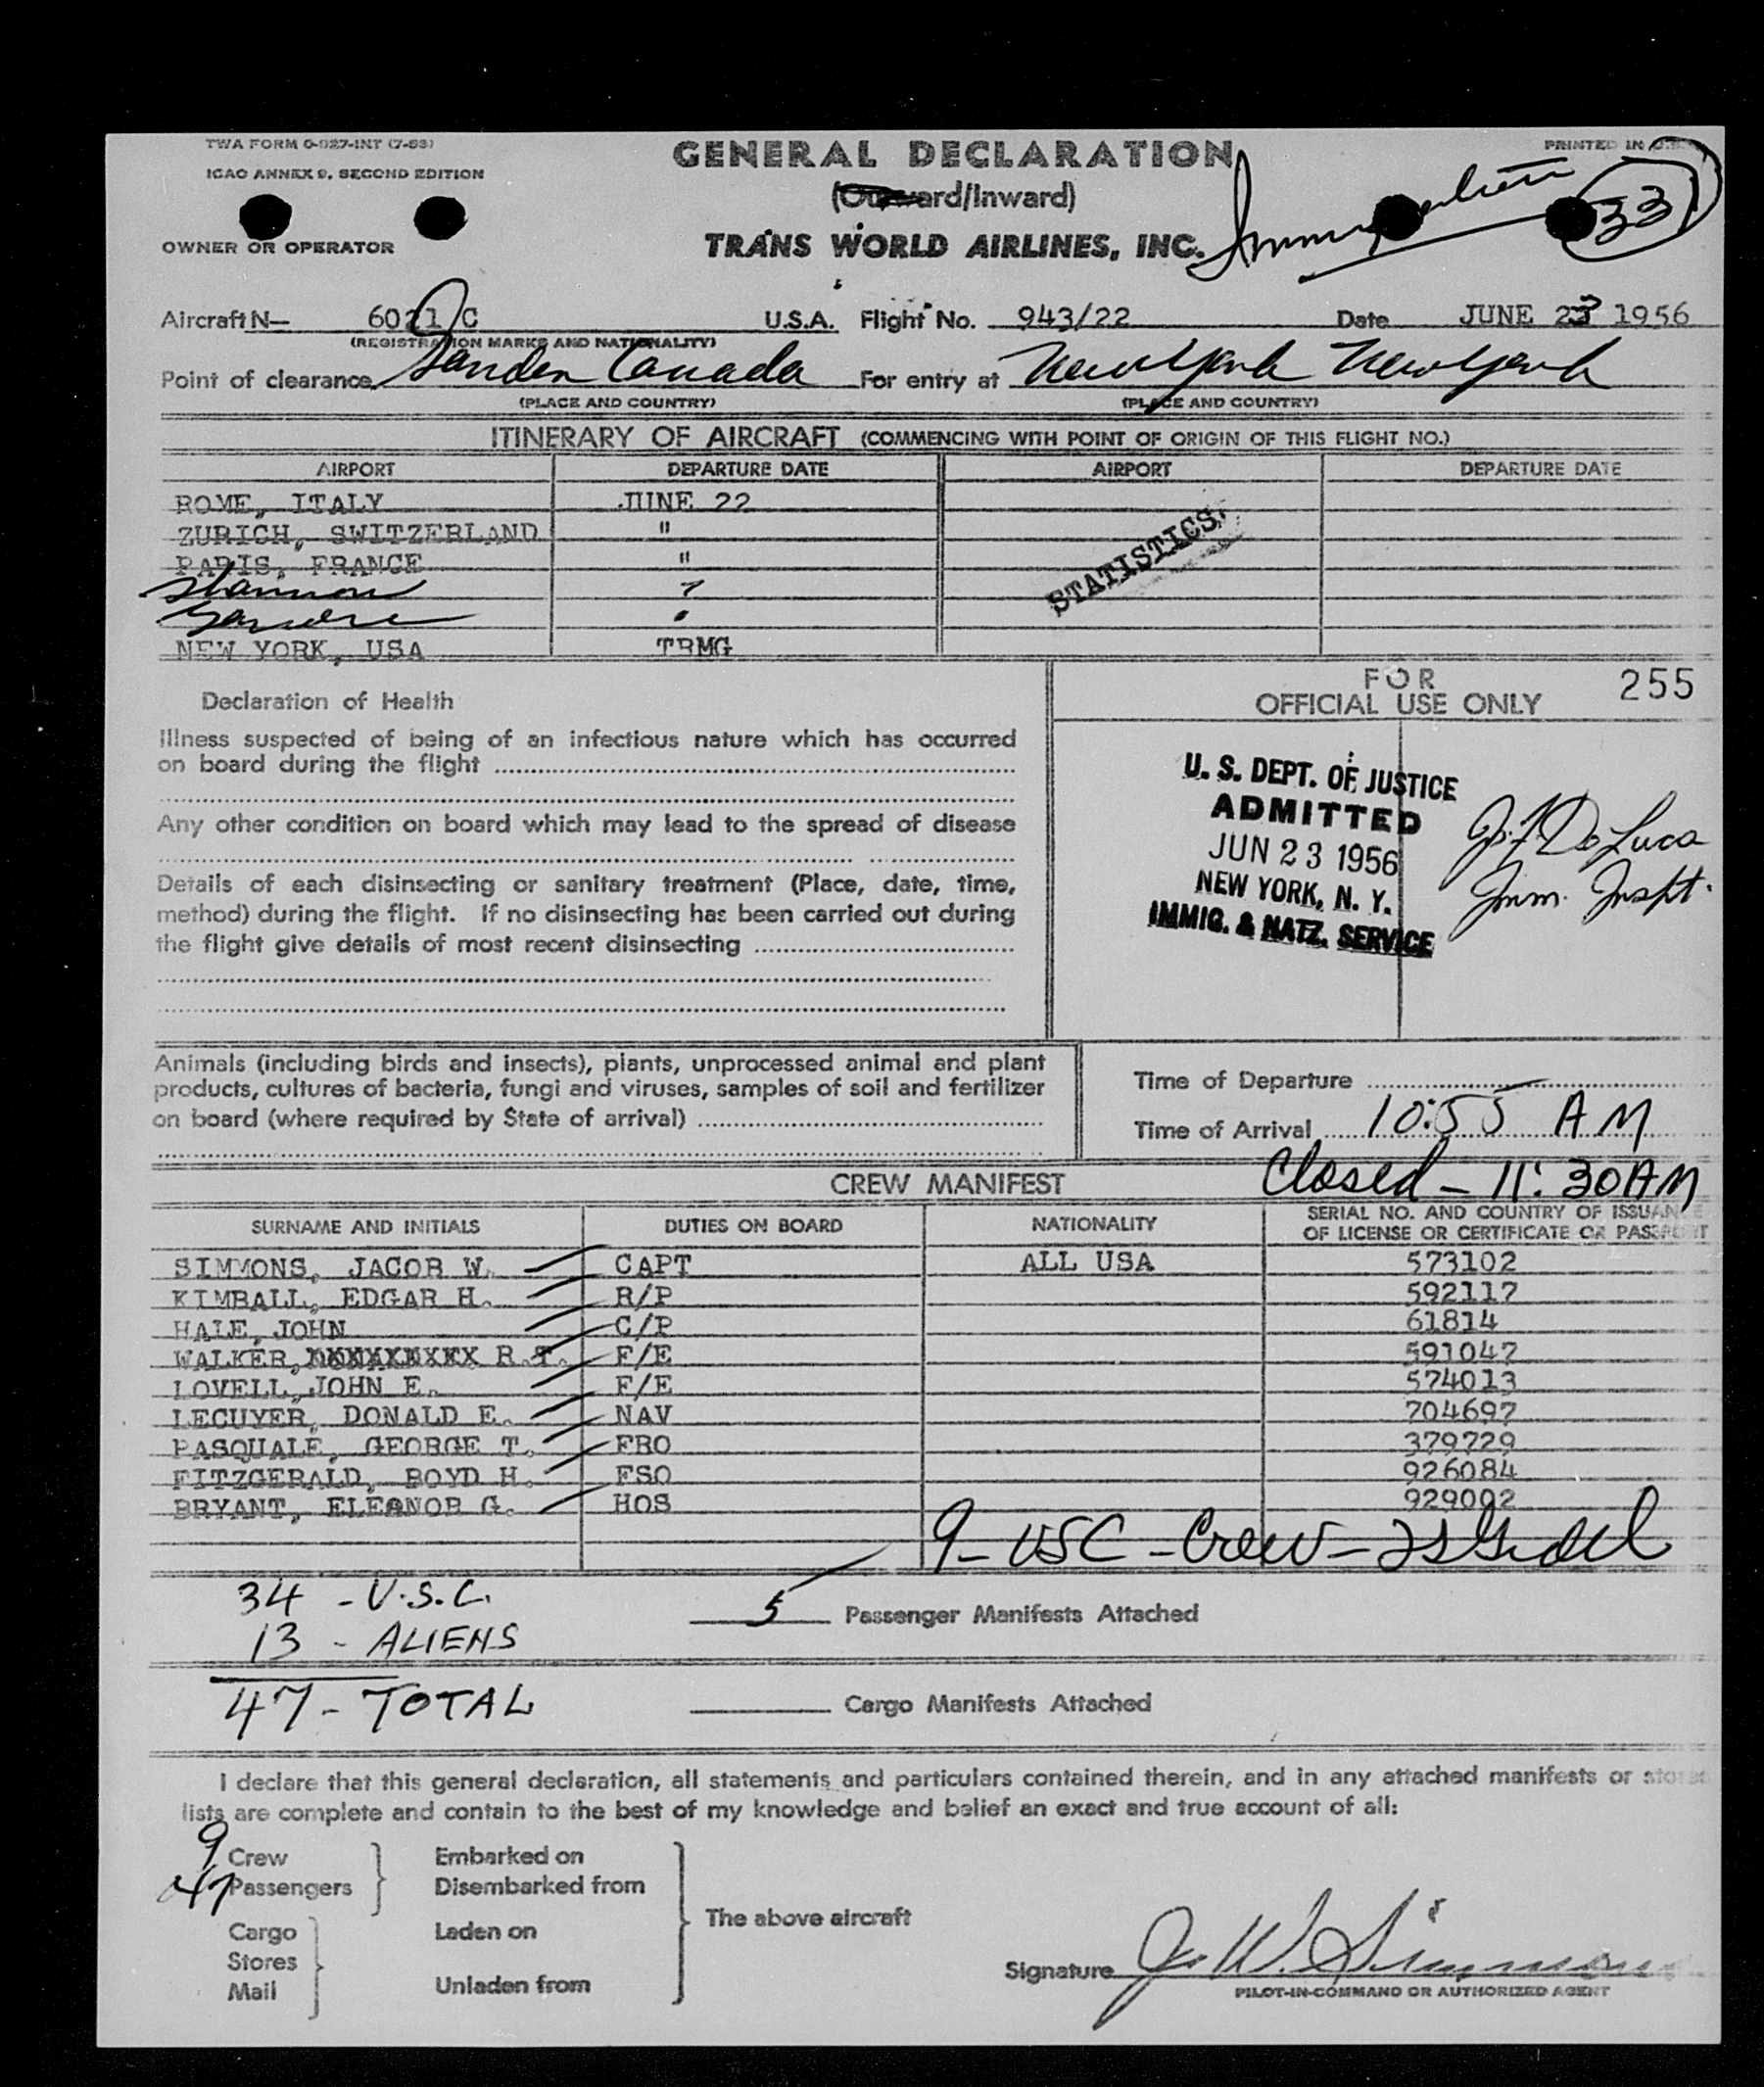 TWA FORM O-927-INT (7-53)
ICAO ANNEX 9, SECOND EDITION
PRINTED IN U.S.
GENERAL DECLARATION
(Outward/Inward)
Immigration 33
OWNER OR OPERATOR
TRANS WORLD AIRLINES, INC.
Aircraft N— 6021 C U.S.A. Flight No. 943/22 Date JUNE 23 1956
(REGISTRATION MARKS AND NATIONALITY)
Point of clearance Gander Canada For entry at New York New York
(PLACE AND COUNTRY) (PLACE AND COUNTRY)
ITINERARY OF AIRCRAFT (COMMENCING WITH POINT OF ORIGIN OF THIS FLIGHT NO.)
AIRPORT DEPARTURE DATE AIRPORT DEPARTURE DATE
ROME, ITALY JUNE 22
ZURICH, SWITZERLAND "
PARIS, FRANCE "
Shannon "
Gander "
NEW YORK, USA TRMG
STATISTICS
FOR
OFFICIAL USE ONLY 255
Declaration of Health
Illness suspected of being of an infectious nature which has occurred
on board during the flight
Any other condition on board which may lead to the spread of disease
Details of each disinsecting or sanitary treatment (Place, date, time,
method) during the flight. If no disinsecting has been carried out during
the flight give details of most recent disinsecting
U. S. DEPT. OF JUSTICE
ADMITTED
JUN 23 1956
NEW YORK, N. Y.
IMMIG. & NATZ. SERVICE
J. F. De Luca
Imm. Inspt.
Animals (including birds and insects), plants, unprocessed animal and plant
products, cultures of bacteria, fungi and viruses, samples of soil and fertilizer
on board (where required by State of arrival)
Time of Departure
Time of Arrival 10:55 AM
Closed - 11:30 AM
CREW MANIFEST
SURNAME AND INITIALS DUTIES ON BOARD NATIONALITY SERIAL NO. AND COUNTRY OF ISSUANCE
OF LICENSE OR CERTIFICATE OR PASSPORT
SIMMONS, JACOB W. CAPT ALL USA 573102
KIMBALL, EDGAR H. R/P 592117
HALE, JOHN C/P 61814
WALKER, R.T. F/E 591047
LOVELL, JOHN E. F/E 574013
LECUYER, DONALD E. NAV 704697
PASQUALE, GEORGE T. FRO 379729
FITZGERALD, BOYD H. FSO 926084
BRYANT, ELEANOR G. HOS 929002
9 - USC - Crew -
34 - U.S.C.
13 - ALIENS
47 - TOTAL
5 Passenger Manifests Attached
Cargo Manifests Attached
I declare that this general declaration, all statements and particulars contained therein, and in any attached manifests or stores
lists are complete and contain to the best of my knowledge and belief an exact and true account of all:
9 Crew
47 Passengers
Embarked on
Disembarked from
Cargo
Stores
Mail
Laden on
Unladen from
The above aircraft
Signature J. W. Simmons
PILOT-IN-COMMAND OR AUTHORIZED AGENT